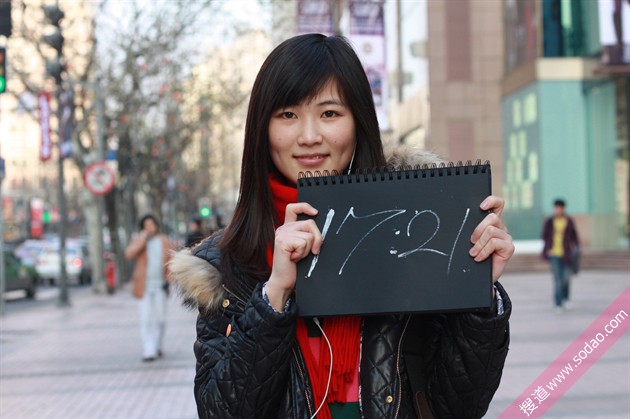 17:21
搜道 www.sodao.com